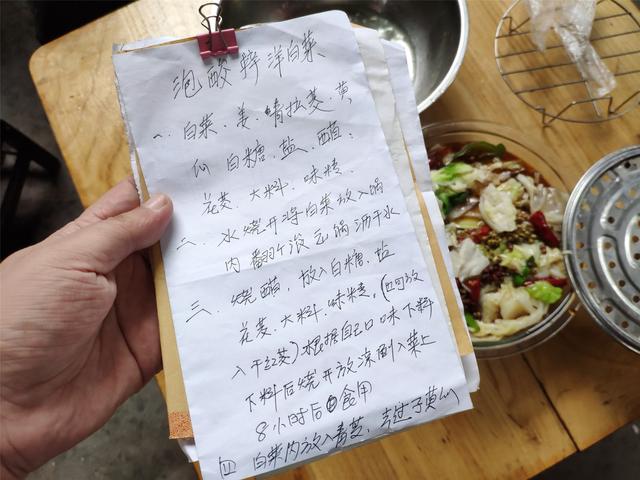 泡酸辣洋白菜
一、白菜、姜、精拉菱、黄
瓜 白糖、盐、醋、
花菱、大料、味精、
二、水烧开将白菜放入锅
内翻个滚出锅沥干水
三、烧醋,放入白糖、盐
花菱、大料、味精,(也可放
入干红菱)根据自己口味下料
下料后烧开放凉倒入菜上
8小时后食用
四 白菜内放入青菱、去过子黄瓜